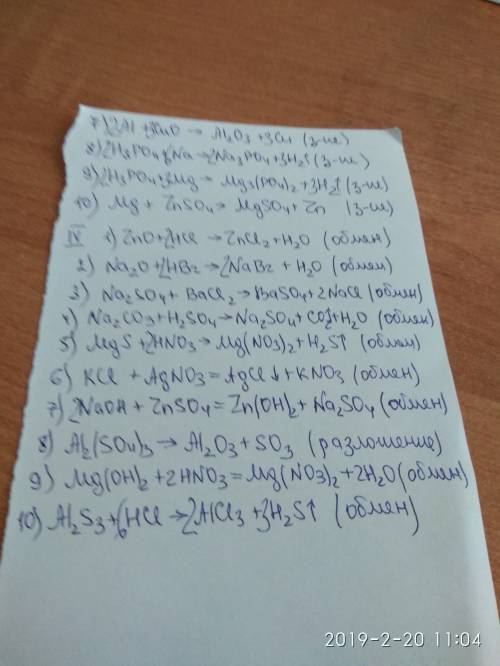 7) 2Al + 3CuO → Al2O3 + 3Cu (з-ие)
8) 2H3PO4 + 6Na → 2Na3PO4 + 3H2↑ (з-ие)
9) 2H3PO4 + 3Mg → Mg3(PO4)2 + 3H2↑ (з-ие)
10) Mg + ZnSO4 → MgSO4 + Zn (з-ие)
IV 1) ZnO + 2HCl → ZnCl2 + H2O (обмен)
2) Na2O + 2HBr → 2NaBr + H2O (обмен)
3) Na2SO4 + BaCl2 → BaSO4 + 2NaCl (обмен)
4) Na2CO3 + H2SO4 → Na2SO4 + CO2↑ + H2O (обмен)
5) MgS + 2HNO3 → Mg(NO3)2 + H2S↑ (обмен)
6) KCl + AgNO3 = AgCl↓ + KNO3 (обмен)
7) 2NaOH + ZnSO4 = Zn(OH)2 + Na2SO4 (обмен)
8) Al2(SO4)3 → Al2O3 + SO3 (разложение)
9) Mg(OH)2 + 2HNO3 = Mg(NO3)2 + 2H2O (обмен)
10) Al2S3 + 6HCl → 2AlCl3 + 3H2S↑ (обмен)
2019-2-20 11:04